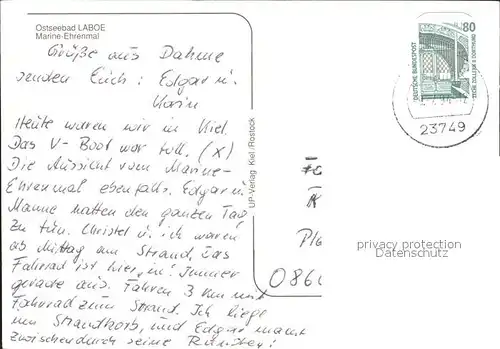 Ostseebad LABOE
Marine-Ehrenmal
Grüße aus Dahme
senden Euch: Edgar u.
Karin
Heute waren wir in Kiel.
Das V-Boot war toll. (X)
Die Aussicht vom Marine-
Ehrenmal ebenfalls. Edgar u.
Manne hatten den ganzen Tag
zu tun. Christel u. ich waren
ab Mittag am Strand. Das
Fahrrad ist hier "in". Immer
gerade aus. Fahren 3 km mit
Fahrrad zum Strand. Ich liege
im Strandkorb, und Edgar macht
zwischendurch seine Runden!
UP-Verlag Kiel/Rostock
DEUTSCHE BUNDESPOST
80
ZECHE ZOLLERN II DORTMUND
23749
privacy protection
Datenschutz